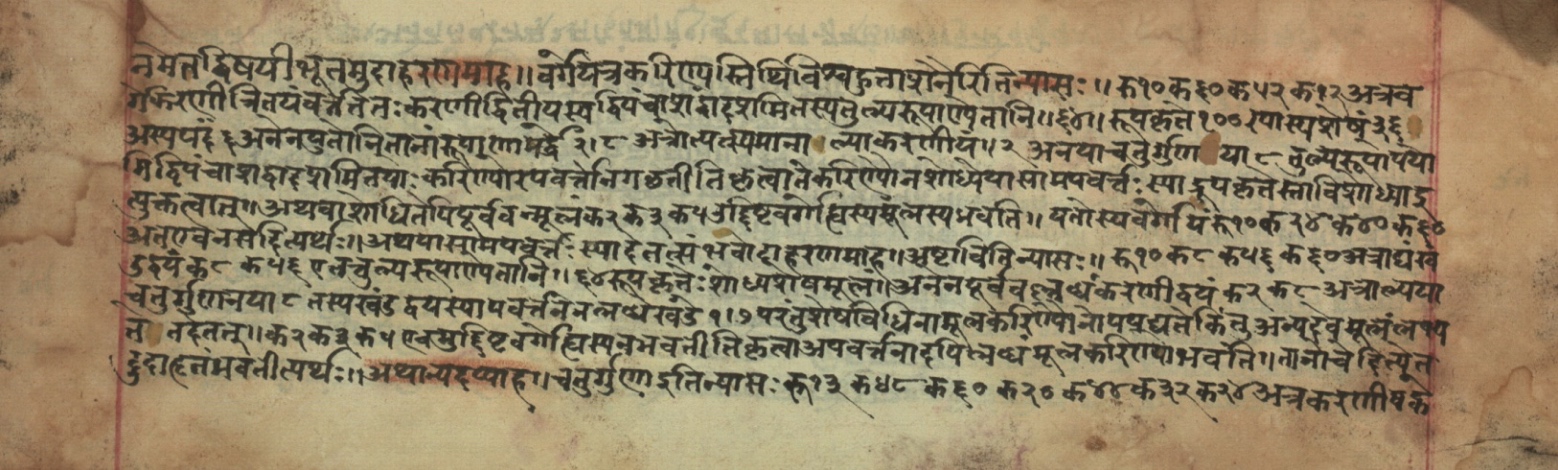 नमेतद्विषयीभूतमुदाहरणमाह॥ वर्गेयत्रकरिण्यस्तिथिविश्वहुताशनैरितिन्यासः॥ रू१० क६० क५२ क१२ अत्रव
र्गेकरणीत्रितयंवर्त्ततेततःकरणीद्वितीयस्यद्विपंचाशद्द्वादशमितस्यतुल्यरूपाण्येतानि॥६४॥ रूपकृतेः१००रपास्यशेषं३६
अस्यपदं६अनेनयुतोनितानांरूपाणामर्द्धे२।८ अत्राल्पत्स्यमाना ल्याकरणीयं॥२ अनयाचतुर्गुण याः८तुल्यरूपाण्यया
मिद्विपंचाशद्द्वादशमितयाः करिण्योरपवर्त्तनेनगछतीतिकृत्वातेकरिण्यौनशोध्येयासामपवर्त्तः स्याद्रूपकृतेस्ताविशोध्याइ
त्युक्तत्वात्॥ अथवाशोधितेपिपूर्ववन्मूलंकर२ क३ क५उद्दिष्टवर्गेह्यस्यमूलस्यभवति॥ यतोस्यवर्गोयंरू१०क२४क४०क६०
अतएवनसदित्यर्थः॥ अथयासामपवर्त्तः स्यादेतत्संभवोदाहरणमाह॥ अष्टावितिन्यासः॥ रू१० क८ क५६ क६०अत्राद्यंखं
डद्वयंक८ क५६ एतत्तुल्यरूपाण्येतानि॥ ६४रूपकृतेः शोध्यशेषमूलं॥ अनेनपूर्ववल्लब्धंकरणीद्वयं क२ क८ अत्राल्पया
चतुर्गुणानया८तस्यखंडद्वयस्यापवर्त्तनेनलब्धखंडे १।७ परंतुशेषविधिनामूलकरिण्यौनोपपद्येतेकिंतुअन्यदेवमूलंलभ्य
त नदेतत्॥ क२ क३ क५ एवमुद्दिष्टवर्गेह्यस्यनभवतीतिकृत्वाअपवर्त्तनादपिलब्धंमूलकरिण्योभवंति॥ तानोचेदित्यूत
दुदाहृतंभवतीत्यर्थः॥ अथान्यदप्याह॥ चतुर्गुणाइतिन्यासः रू१३ क४८ क६० क२० क४४ क३२ क२४ अत्रकरणीषट्क